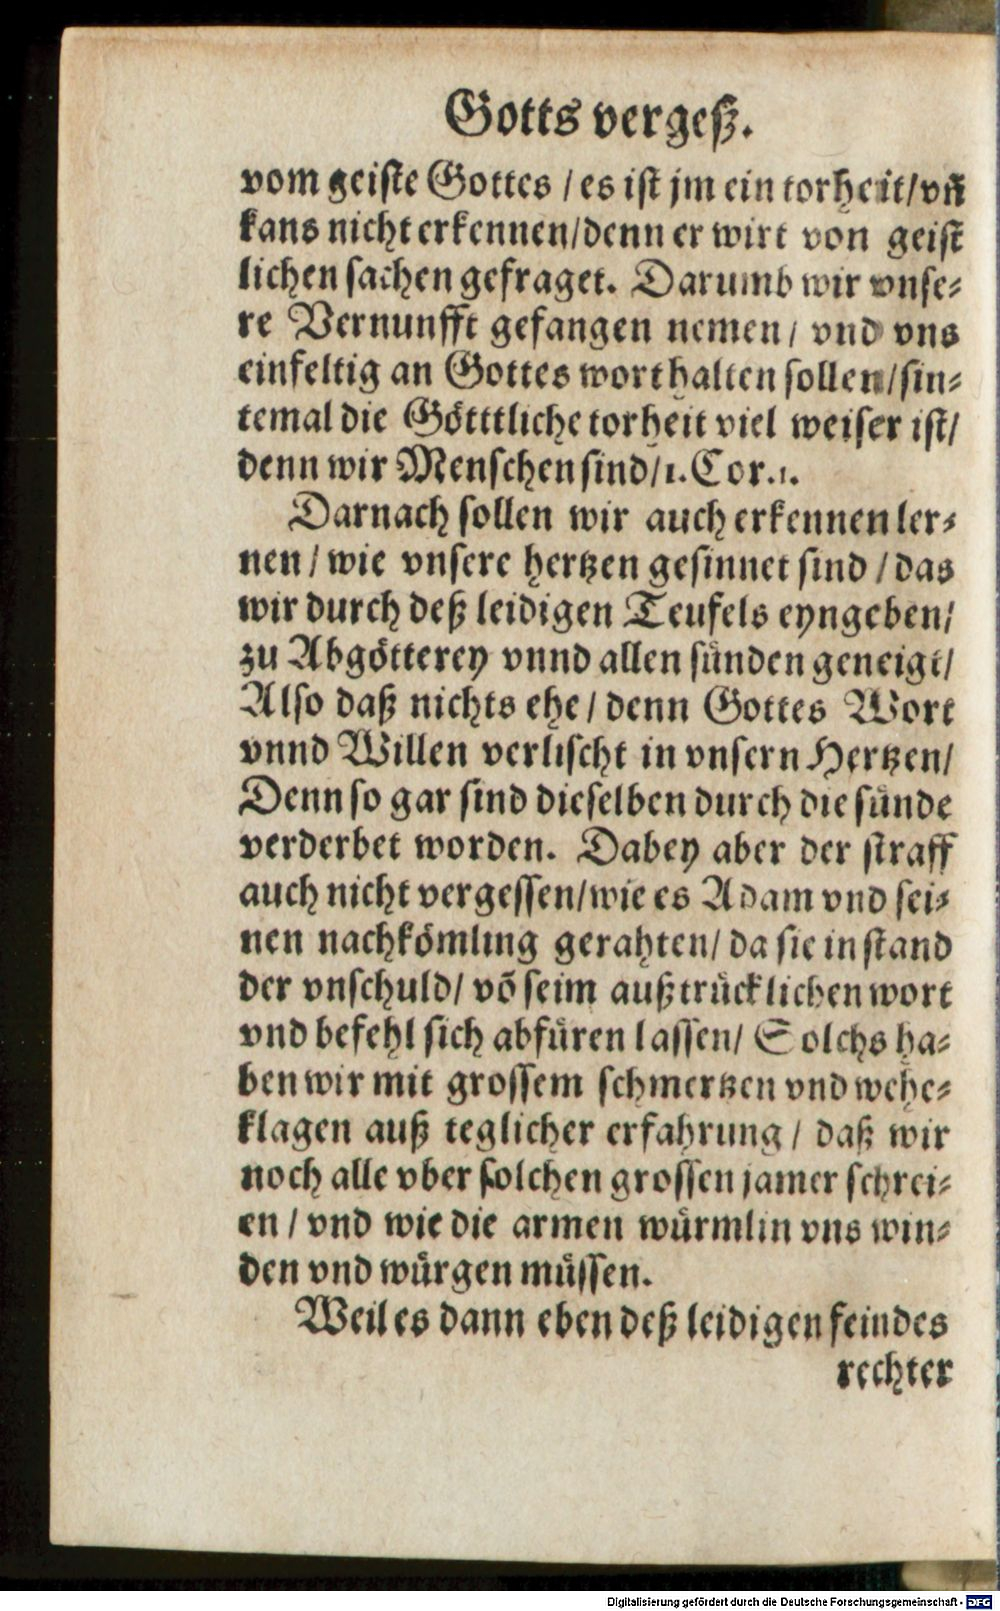 Gotts vergeß.
vom geiste Gottes / es ist jm ein torheit / vñ
kans nicht erkennen / denn er wirt von geist
lichen sachen gefraget. Darumb wir vnse-
re Vernunfft gefangen nemen / vnd vns
einfeltig an Gottes wort halten sollen / sin-
temal die Götttliche torheit viel weiser ist /
denn wir Menschen sind / 1. Cor. 1.
Darnach sollen wir auch erkennen ler-
nen / wie vnsere hertzen gesinnet sind / das
wir durch deß leidigen Teufels eyngeben /
zu Abgötterey vnnd allen sünden geneigt /
Also daß nichts ehe / denn Gottes Wort
vnnd Willen verlischt in vnsern Hertzen /
Denn so gar sind dieselben durch die sünde
verderbet worden. Dabey aber der straff
auch nicht vergessen / wie es Adam vnd sei-
nen nachkömling gerahten / da sie in stand
der vnschuld / võ seim außtrücklichen wort
vnd befehl sich abfüren lassen / Solchs ha-
ben wir mit grossem schmertzen vnd wehe-
klagen auß teglicher erfahrung / daß wir
noch alle vber solchen grossen jamer schrei-
en / vnd wie die armen würmlin vns win-
den vnd würgen müssen.
Weil es dann eben deß leidigen feindes
rechter
Digitalisierung gefördert durch die Deutsche Forschungsgemeinschaft - DFG